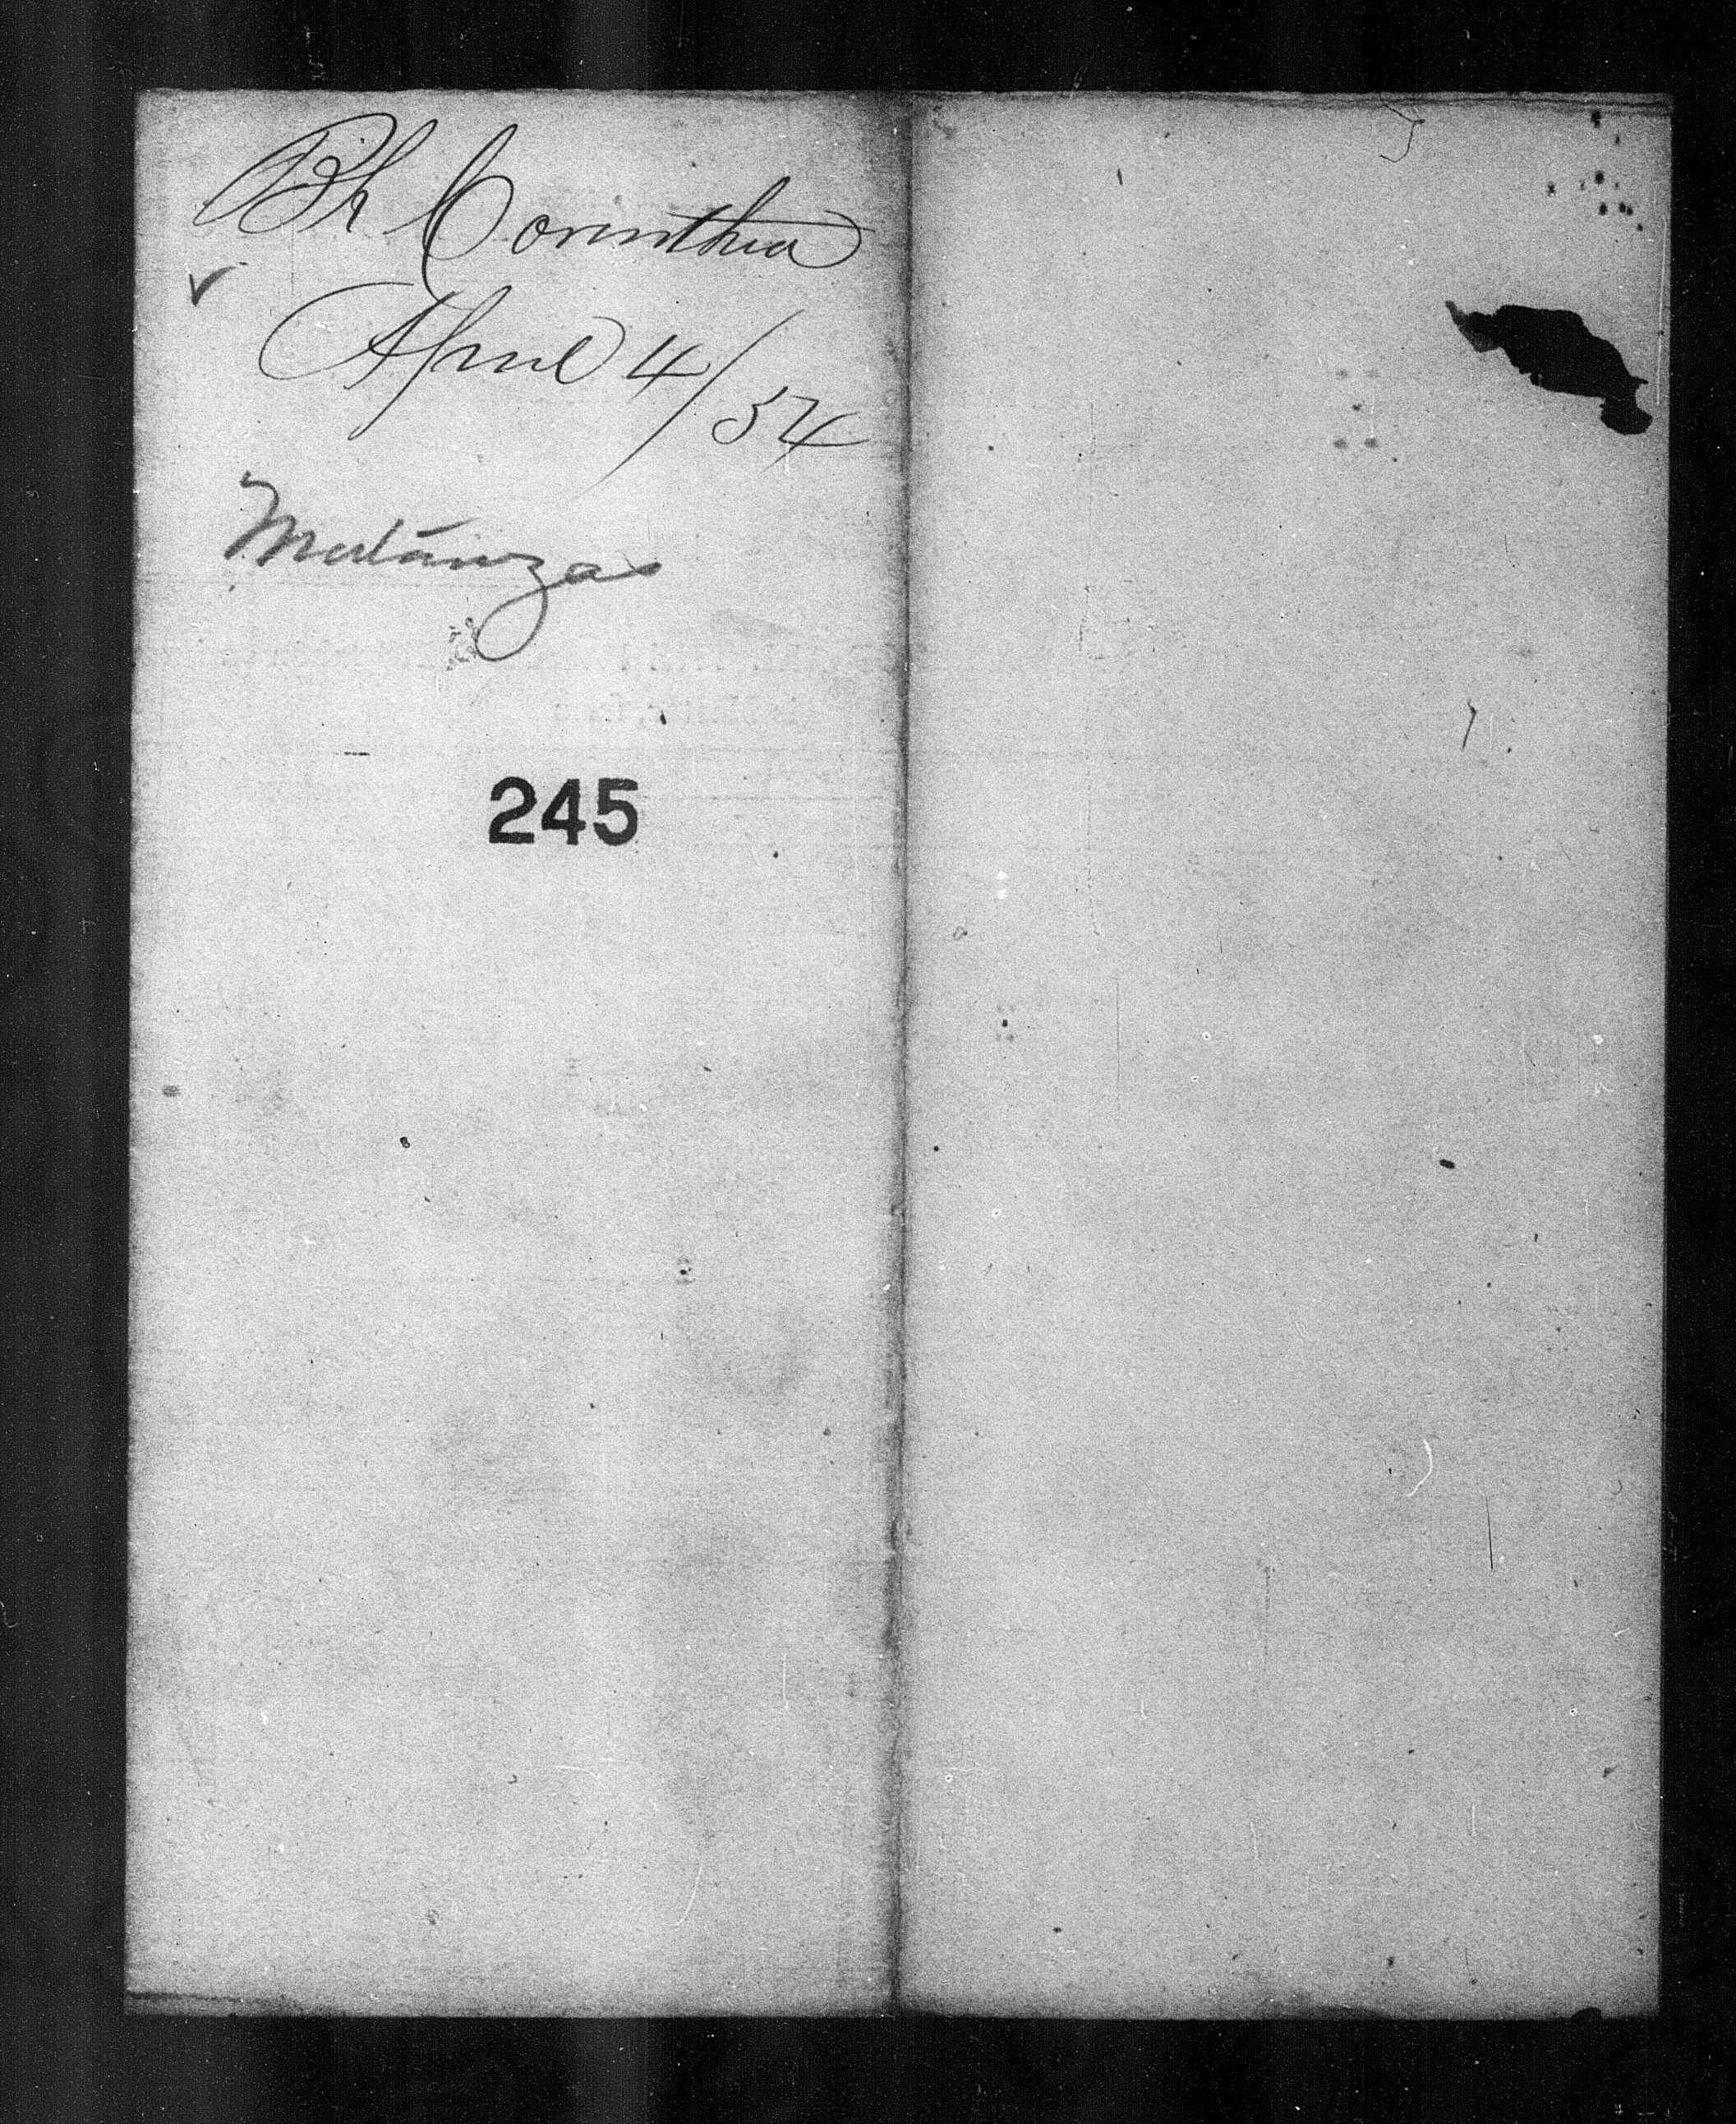 Bk Corinthia
✓
April 4/54
Matánzas
245